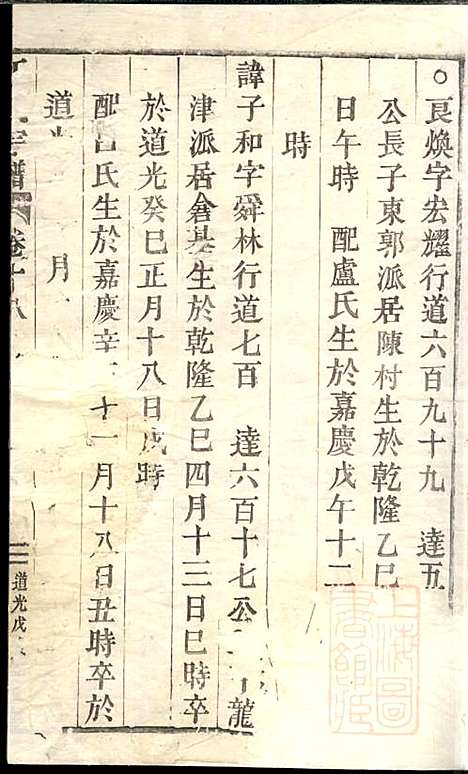 ○良煥字宏耀行道六百九十九　達五
公長子東郭派居陳村生於乾隆乙巳
日午時　配盧氏生於嘉慶戊午十二
時
諱子和字舜林行道七百　達六百十七公　龍
津派居倉基生於乾隆乙巳四月十三日巳時卒
於道光癸巳正月十八日戌時
配呂氏生於嘉慶辛　十一月十八日丑時卒於
道　月
宗譜　卷十八
道光戊
上海圖書館藏